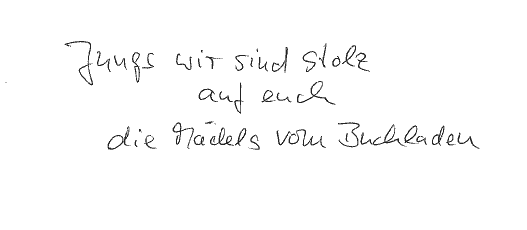 Jungs wir sind stolz
auf euch
die Mädels vom Buchladen